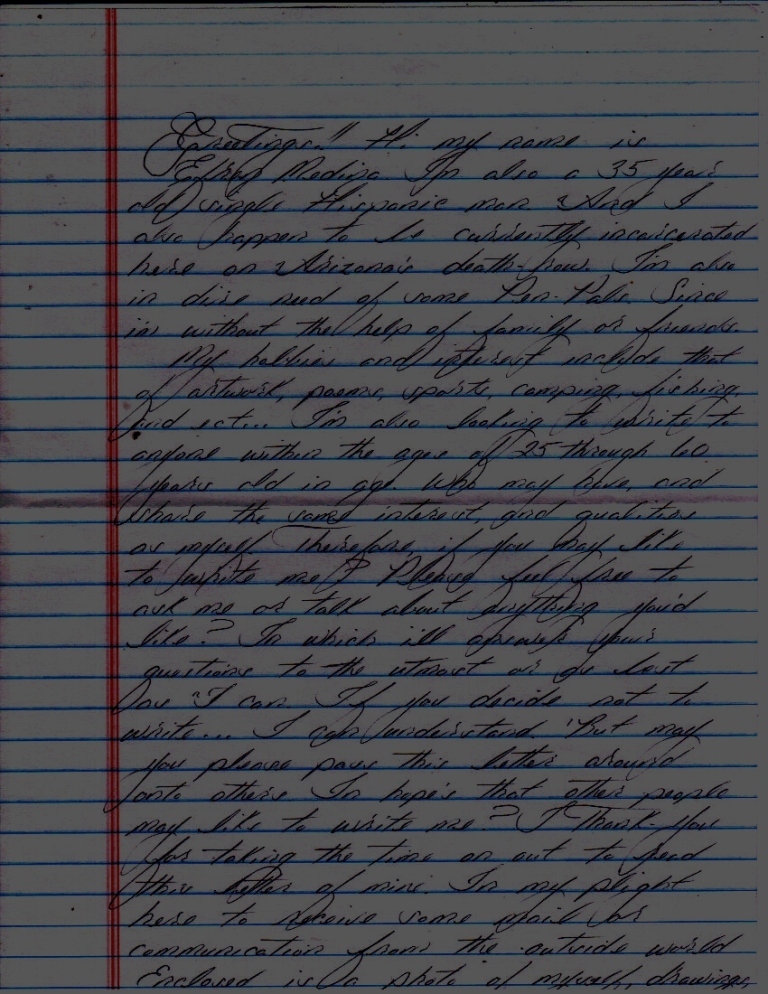 Greetings!! Hi my name is
Medina Im also a 35 year
old single Hispanic man. And I
also happen to be currently incarcerated
here on Arizona's death-row. I'm also
in dire need of some Pen-Pals. Since
im without the help of family or friends.
My hobbies and interest include that
of artwork, poems, sports, camping, fishing,
and ect... I'm also looking to write to
anyone within the ages of 25 through 60
years old in age. Who may have, and
share the same interest, and qualities
as myself. Therefore, if you may like
to write me? Please feel free to
ask me or talk about anything you'd
like? In which ill answer your
questions to the utmost or as best
as I can. If you decide not to
write... I can understand. But may
you please pass this letter around
onto others In hope's that other people
may like to write me? I Thank-you
for taking the time on out to read
this letter of mine. In my plight
here to receive some mail or
communication from the outside world
Enclosed is a photo of myself, drawings,